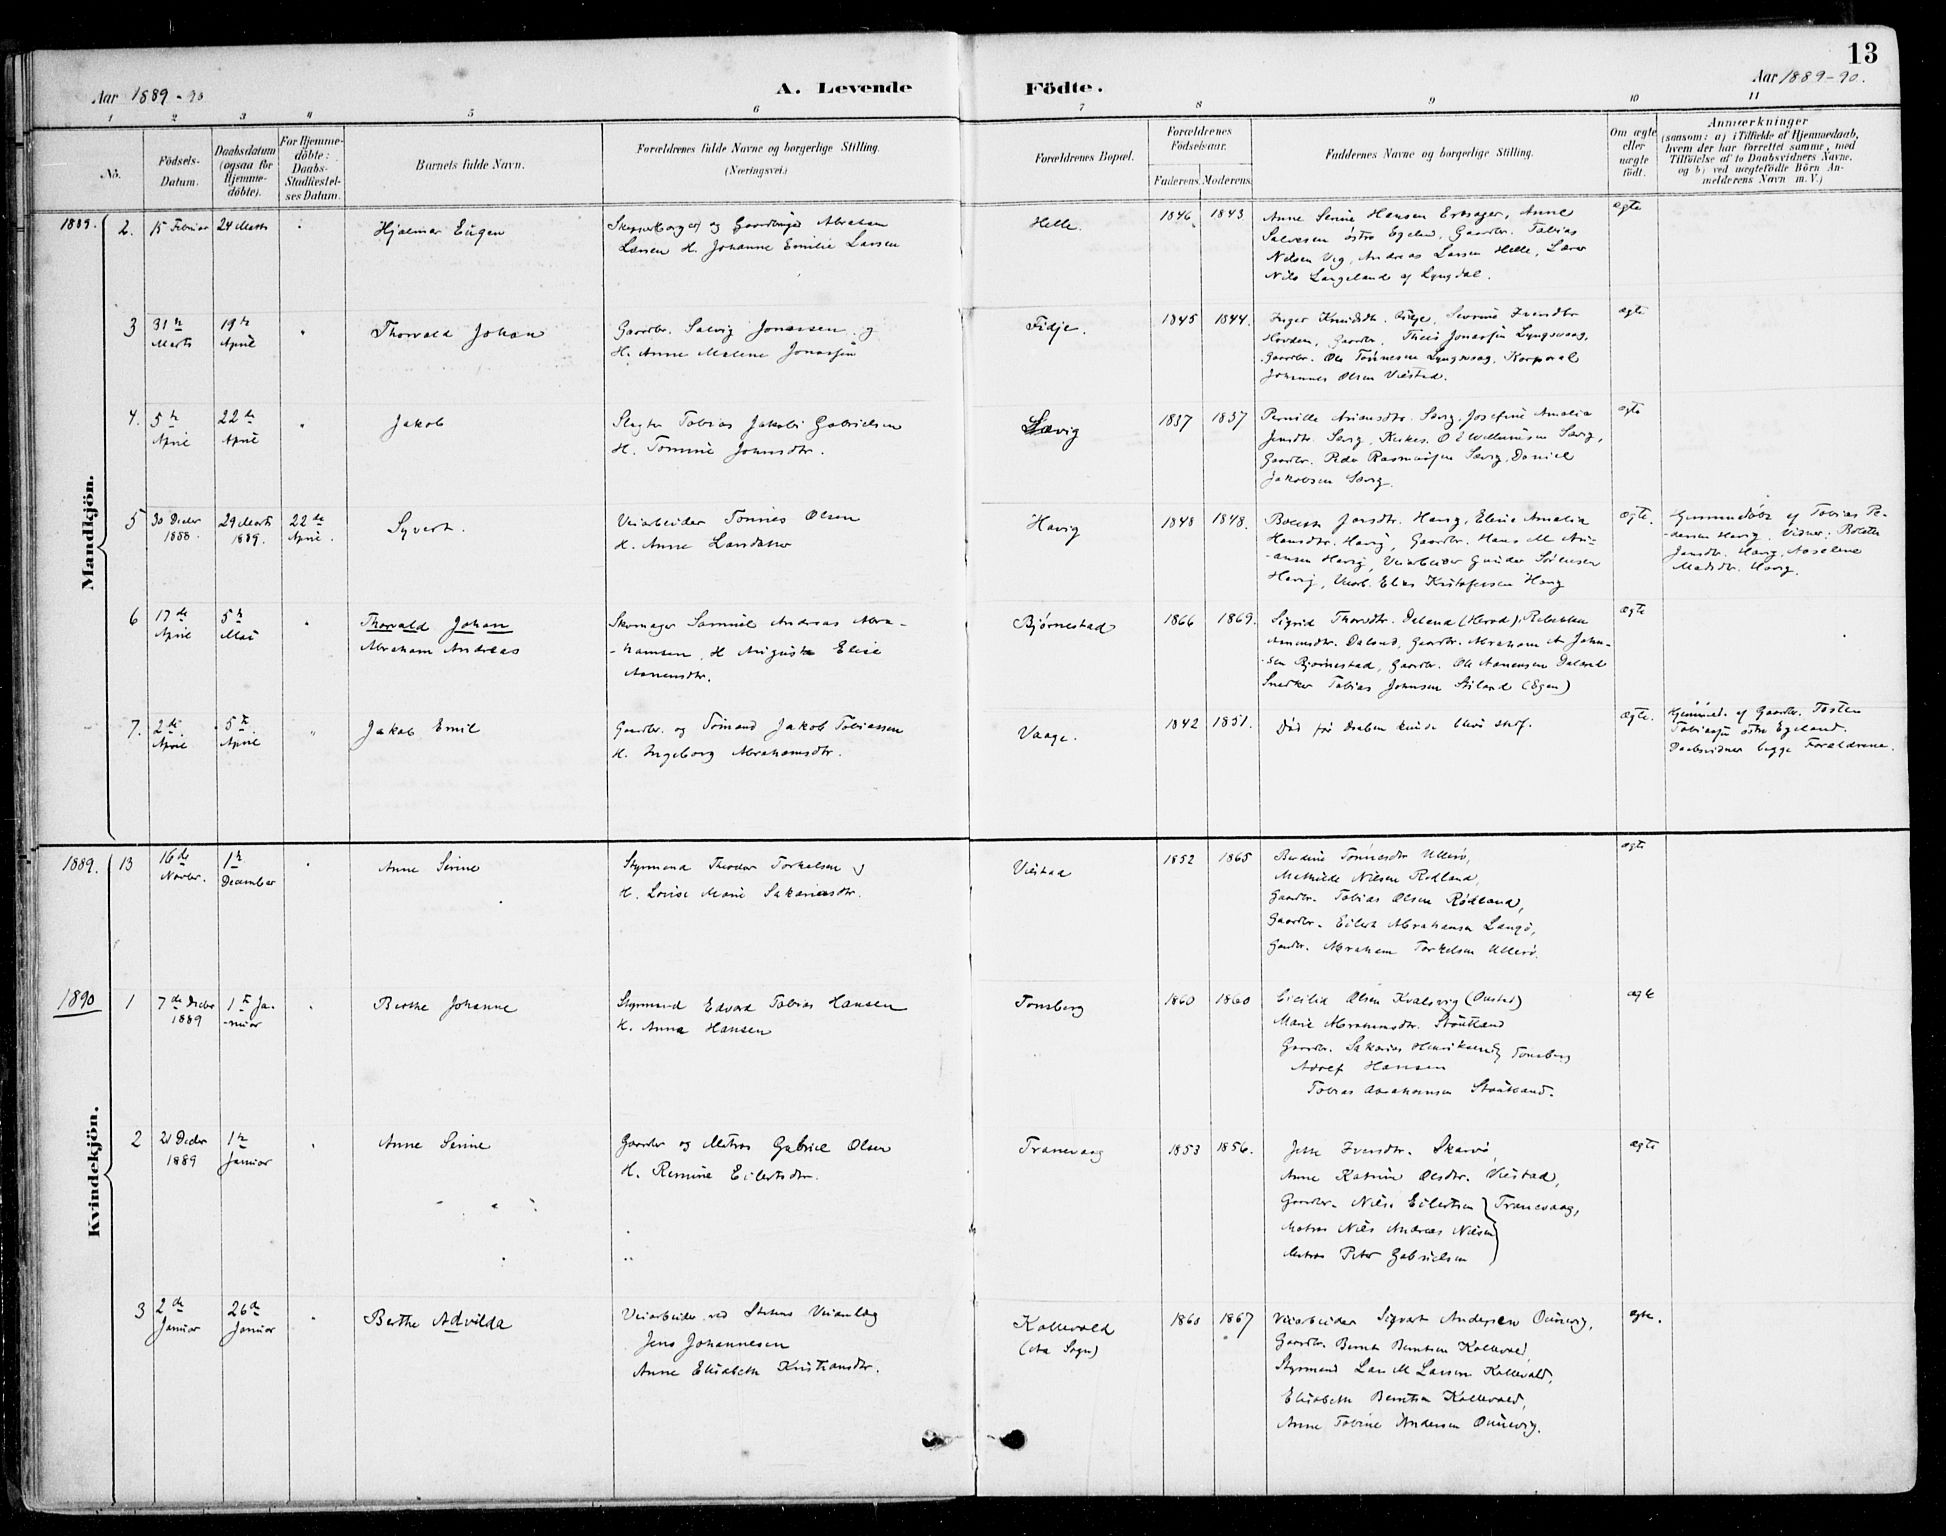 13
Aar 1889-90
A. Levende Födte.
Aar 1889-90.
1 2 3 4 5 6 7 8 9 10 11
No.
Födsels-Datum.
Daabsdatum (ogsaa for Hjemme-döbte).
For Hjemme-döbte: Daabs-Stadfæstel-ses Datum.
Barnets fulde Navn.
Forældrenes fulde Navne og borgerlige Stilling. (Næringsvei.)
Forældrenes Bopæl.
Forældrenes Födselsaar.
Faderens. Moderens.
Faddernes Navne og borgerlige Stilling.
Om ægte eller uægte födt.
Anmærkninger
(saasom: a) i Tilfælde af Hjemmedaab,
hvem der har forrettet samme, med
Tilföielse af to Daabsvidners Navne,
og b) ved uægtefödte Börn An-
melderens Navn m. V.)
Mandkjön.
1889. 2. 15 Februar 24 Marts " Hjalmar Eugen
og Abraham
Larsen H. Johanne Emilie Larsen
Helle. 1846 1843
Anne Serine Hansen Anne
Salvesen østre Egeland, Gaardbr. Tobias
Nilsen Andreas Larsen Helle, Lærer
Nils Langeland af Lyngdal.
ægte
3 31te Marts 19de April " Thorvald Johan
Gaardbr. Salvig Jonassen og
H. Anne Malene Jonassen
Fidje. 1845 1844.
Inger Knudsdtr. Fidje, Severine
Gaardbr. Theis Jonassen Lyngsvaag,
Gaardbr. Ole Tønnesen Lyngsvaag, Korporal
Johannes Olsen Viestad.
ægte
4. 5te April 22de April " Jakob
Tobias Jakob Gabrielsen
H. Tomine Johnsdtr.
Sævig 1837 1837
Pernille Ariansdtr. Sævig, Josefine Amalia
Jensdtr. Sævig, O E Willumsen Sævig,
Gaardbr. Peder Rasmussen Sævig, Daniel
Jakobsen Sævig.
ægte
5 30 Decbr 1888. 29 Marts 1889. 22de April. Syvert.
Veiarbeider Tønnes Olsen
H. Anne Larsdatter
Havig 1848 1848.
Bolette Jansdtr. Havig, Eline Amalia
Hansdtr. Havig, Gaardbr. Hans M. Ari-
-ansen Havig, Veiarbeider Gunder Sørensen
Havig, Veiarb. Elias Kristofersen Havig
ægte.
af Tobias Pe-
-dersen Havig. Vidner: Bolette
Jansdtr. Havig, Aaselene
Madsdtr. Havig.
6 17de April 5te Mai " Thorvald Johan
Abraham Andreas
Skomager Samuel Andreas Abra-
-hamsen, H. Auguste Elise
Aanensdtr.
Bjørnestad 1866 1869.
Sigrid Thorsdtr. Daland (Herad), Rebekka
Aanensdtr. Daland, Gaardbr. Abraham A. John-
sen Bjørnestad, Gaardbr. Ole Aanensen Daland
Snedker Tobias Johnsen Stiland (Egen)
ægte
7. 2de April 5te April " Jakob Emil
Gaardbr. og Tømmand Jakob Tobiassen
H. Ingeborg Abrahamsdtr.
Vaage. 1842 1851.
Død før Daaben kunde blive
ægte.
Hjemmed. af Gaardbr. Tosten
Tobiassen østre Egeland.
Daabsvidner begge Forældrene.
Kvindekjön.
1889. 13 16de Novbr. 1te December " Anne Serine
Styrmand Theodor Torkelsen
H. Lovise Marie Sakariasdtr.
Viestad 1852 1865
Berdine Tønnesdtr Ullerø,
Mathilde Nilsen Rødland,
Gaardbr. Tobias Olsen Rødland,
Gaardbr. Eilert Abrahamsen Langø,
Gaardbr. Abraham Torkelsen Ullerø.
ægte
1890 1 7de Decbr 1889 1te Ja-
-nuar " Berthe Johanne
Styrmand Edvard Tobias Hansen
H. Anna Hansen
Tonsberg 1860 1860
Cicilia Olsen Kvalsvig (Oustad)
Marie Abrahamsdtr. Strütland
Gaardbr. Sakarias Henriksen Tonsberg
Adolf Hansen
Tobias Abrahamsen Strütland.
ægte
2 21 Decbr 1889 1te Januar " Anne Serine
Gaardbr og Matros Gabriel Olsen
H. Remine Eilertsdtr.
Tranevaag 1853 1856.
Iversdtr. Skarvø,
Anne Katrine Olsdtr. Viestad,
Gaardbr. Nilse Eilertsen } Tranevaag,
Matros Nils Andreas Nilsen
Matros Peter Gabrielsen
ægte
3 2de Januar 26de Januar " Berthe Advilda
Veiarbeider ved Statens Veianlæg
Jens Johannesen
Anne Elisabeth Kristiansdtr.
Kollevold
(Aa Sogn)
1860 1867
Veiarbeider Sigvart Andersen
Gaardbr. Bernt Berntsen Kollevold,
Styrmand Lars M Larsen Kollevold,
Elisabeth Berntsen Kollevold,
Anne Tobine Andersen
ægte.